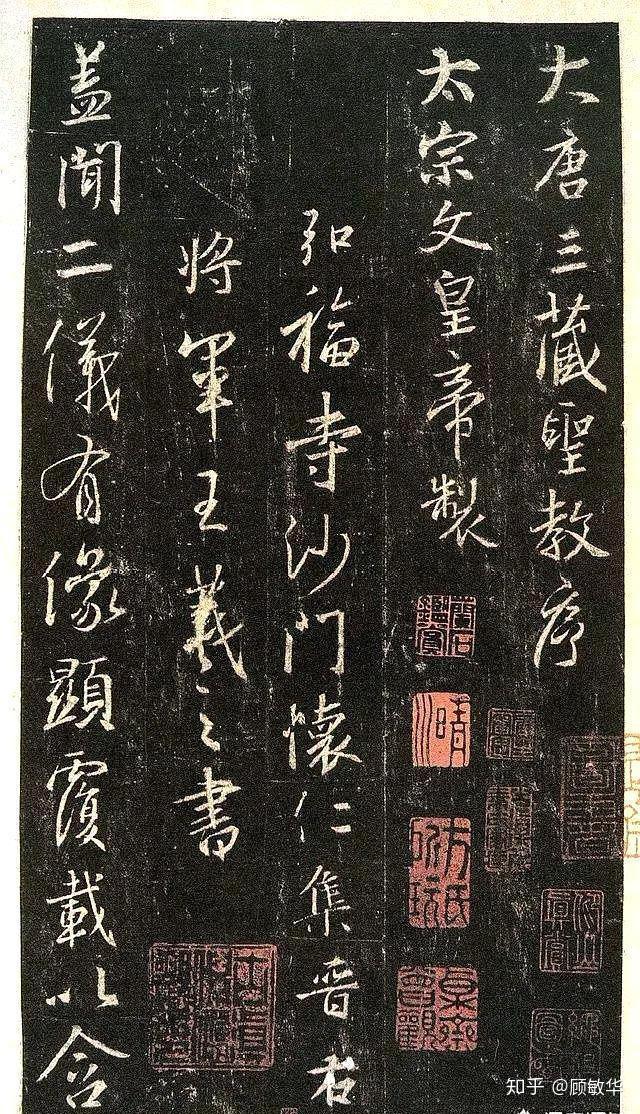 大唐三藏聖教序
太宗文皇帝製
弘福寺沙門懷仁集晋右
将軍王羲之書
盖聞二儀有像顯覆載以含
晴川
知乎 @顾敏华